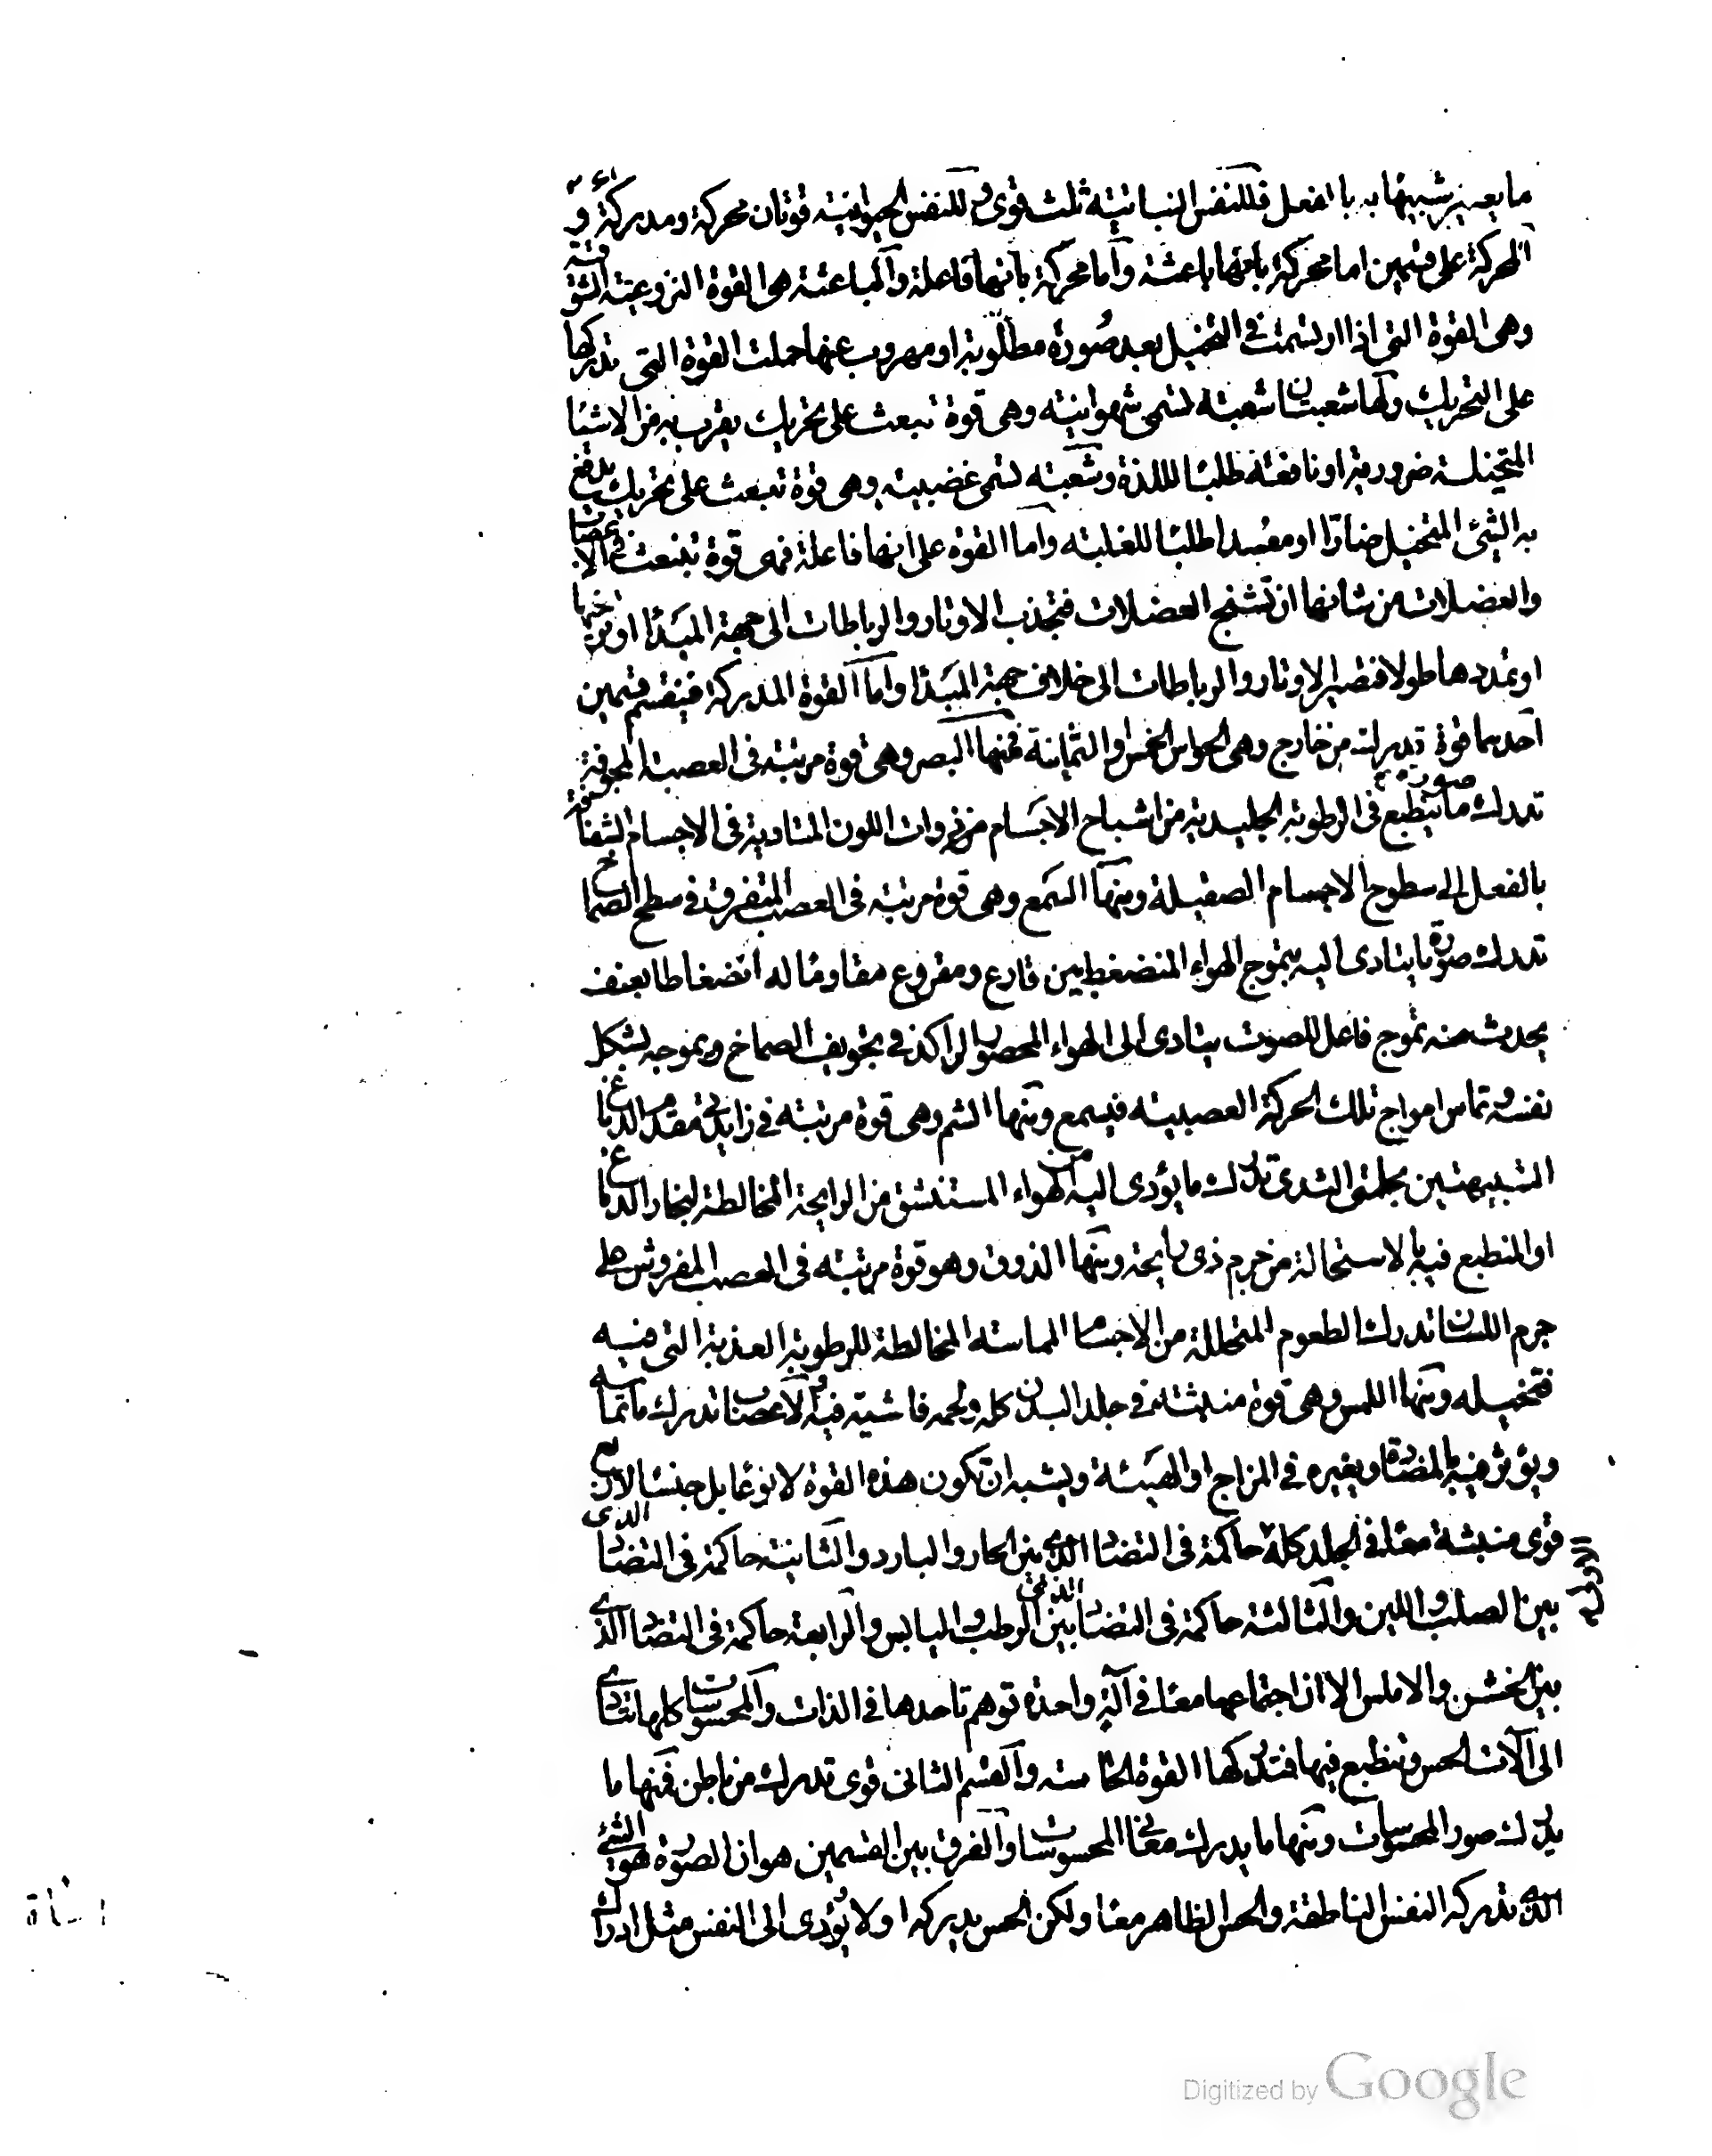 ما يصير شبيها به بالفعل فللنفس النباتية ثلث قوى وللنفس الحيوانية قوتان محركة ومدركة و
المحركة على قسمين اما محركة بانها باعثة واما محركة بانها فاعلة والباعثة هى القوة النزوعية الشوقية
وهى القوة التى اذا ارتسمت فى التخيل بعد صورة مطلوبة او مهروب عنها حملت القوة التى تدركها
على التحريك ولها شعبتان شعبة تسمى شهوانية وهى قوة تبعث على تحريك يقرب به من الاشياء
المتخيلة ضرورية او نافعة طلبا لللذة وشعبة تسمى غضبية وهى قوة تبعث على تحريك يدفع
به الشئ المتخيل ضارّا او مفسدا طلبا للغلبة واما القوة على انها فاعلة فهى قوة تنبعث فى الاعصاب
والعضلات من شانها ان تشنج العضلات فتجذب الاوتار والرباطات الى جهة المبدا او يرخيها
او تمددها طولا فتصير الاوتار والرباطات الى خلاف جهة المبدا واما القوة المدركة فينقسم قسمين
احدهما قوة تدرك من خارج وهى الحواس الخمس او الثمانية فمنها البصر وهى قوة مرتبة فى العصبة المجوفة
تدرك صورة ما ينطبع فى الرطوبة الجليدية من اشباح الاجسام من ذوات اللون المتادية فى الاجسام الشفافة
بالفعل الى سطوح الاجسام الصقيلة ومنها السمع وهى قوة مرتبة فى العصب المتفرق فى سطح الصماخ
تدرك صورة ما يتادى اليه بتموج الهواء المنضغط بين قارع ومقروع مقاوما له انضغاطا بعنف
يحدث منه تموج فاعل للصوت يتادى الى الهواء المحصور الراكد فى تجويف الصماخ ويموجه بشكل
نفسه وتماس امواج تلك الحركة العصبية فيسمع ومنها الشم وهى قوة مرتبة فى زايدتى مقدم الدماغ
الشبيهتين بحلمتى الثدى تدرك ما يؤدى اليه الهواء المستنشق من الرايحة المخالطة لبخار الدماغ
او المنطبع فيه بالاستحالة من جرم ذى رايحة ومنها الذوق وهو قوة مرتبة فى العصب المفروش على
جرم اللسان تدرك الطعوم المتحللة من الاجسام المماسة المخالطة للرطوبة العذبة التى فيه
فتحيله ومنها اللمس وهى قوة منبثة فى جلد البدن كله ولحمه فاشية فيه والاعصاب تدرك ما تماسه
ويؤثر فيه بالمضادة ويغيره فى المزاج او الهيئة ويشبه ان تكون هذه القوة لا نوعا بل جنسا لاربع
قوى منبثة معا فى الجلد كله حاكمة فى التضاد الذى بين الحار والبارد والثانية حاكمة فى التضاد الذى
الاولى
بين الصلب واللين والثالثة حاكمة فى التضاد الذى بين الرطب واليابس والرابعة حاكمة فى التضاد الذى
بين الخشن والاملس الا ان اجتماعها معا فى آلة واحدة توهم تاحدها فى الذات والمحسوسات كلها تتادى
الى آلات الحس وتنطبع فيها فتدركها القوة الحاسة والقسم الثانى قوى تدرك من باطن فمنها ما
يدرك صور المحسوسات ومنها ما يدرك معانى المحسوسات والفرق بين القسمين هو ان الصورة هو الشئ
الذى تدركه النفس الناطقة والحس الظاهر معا ولكن الحس يدركه اولا ويؤدى الى النفس مثل ادراك
Digitized by Google